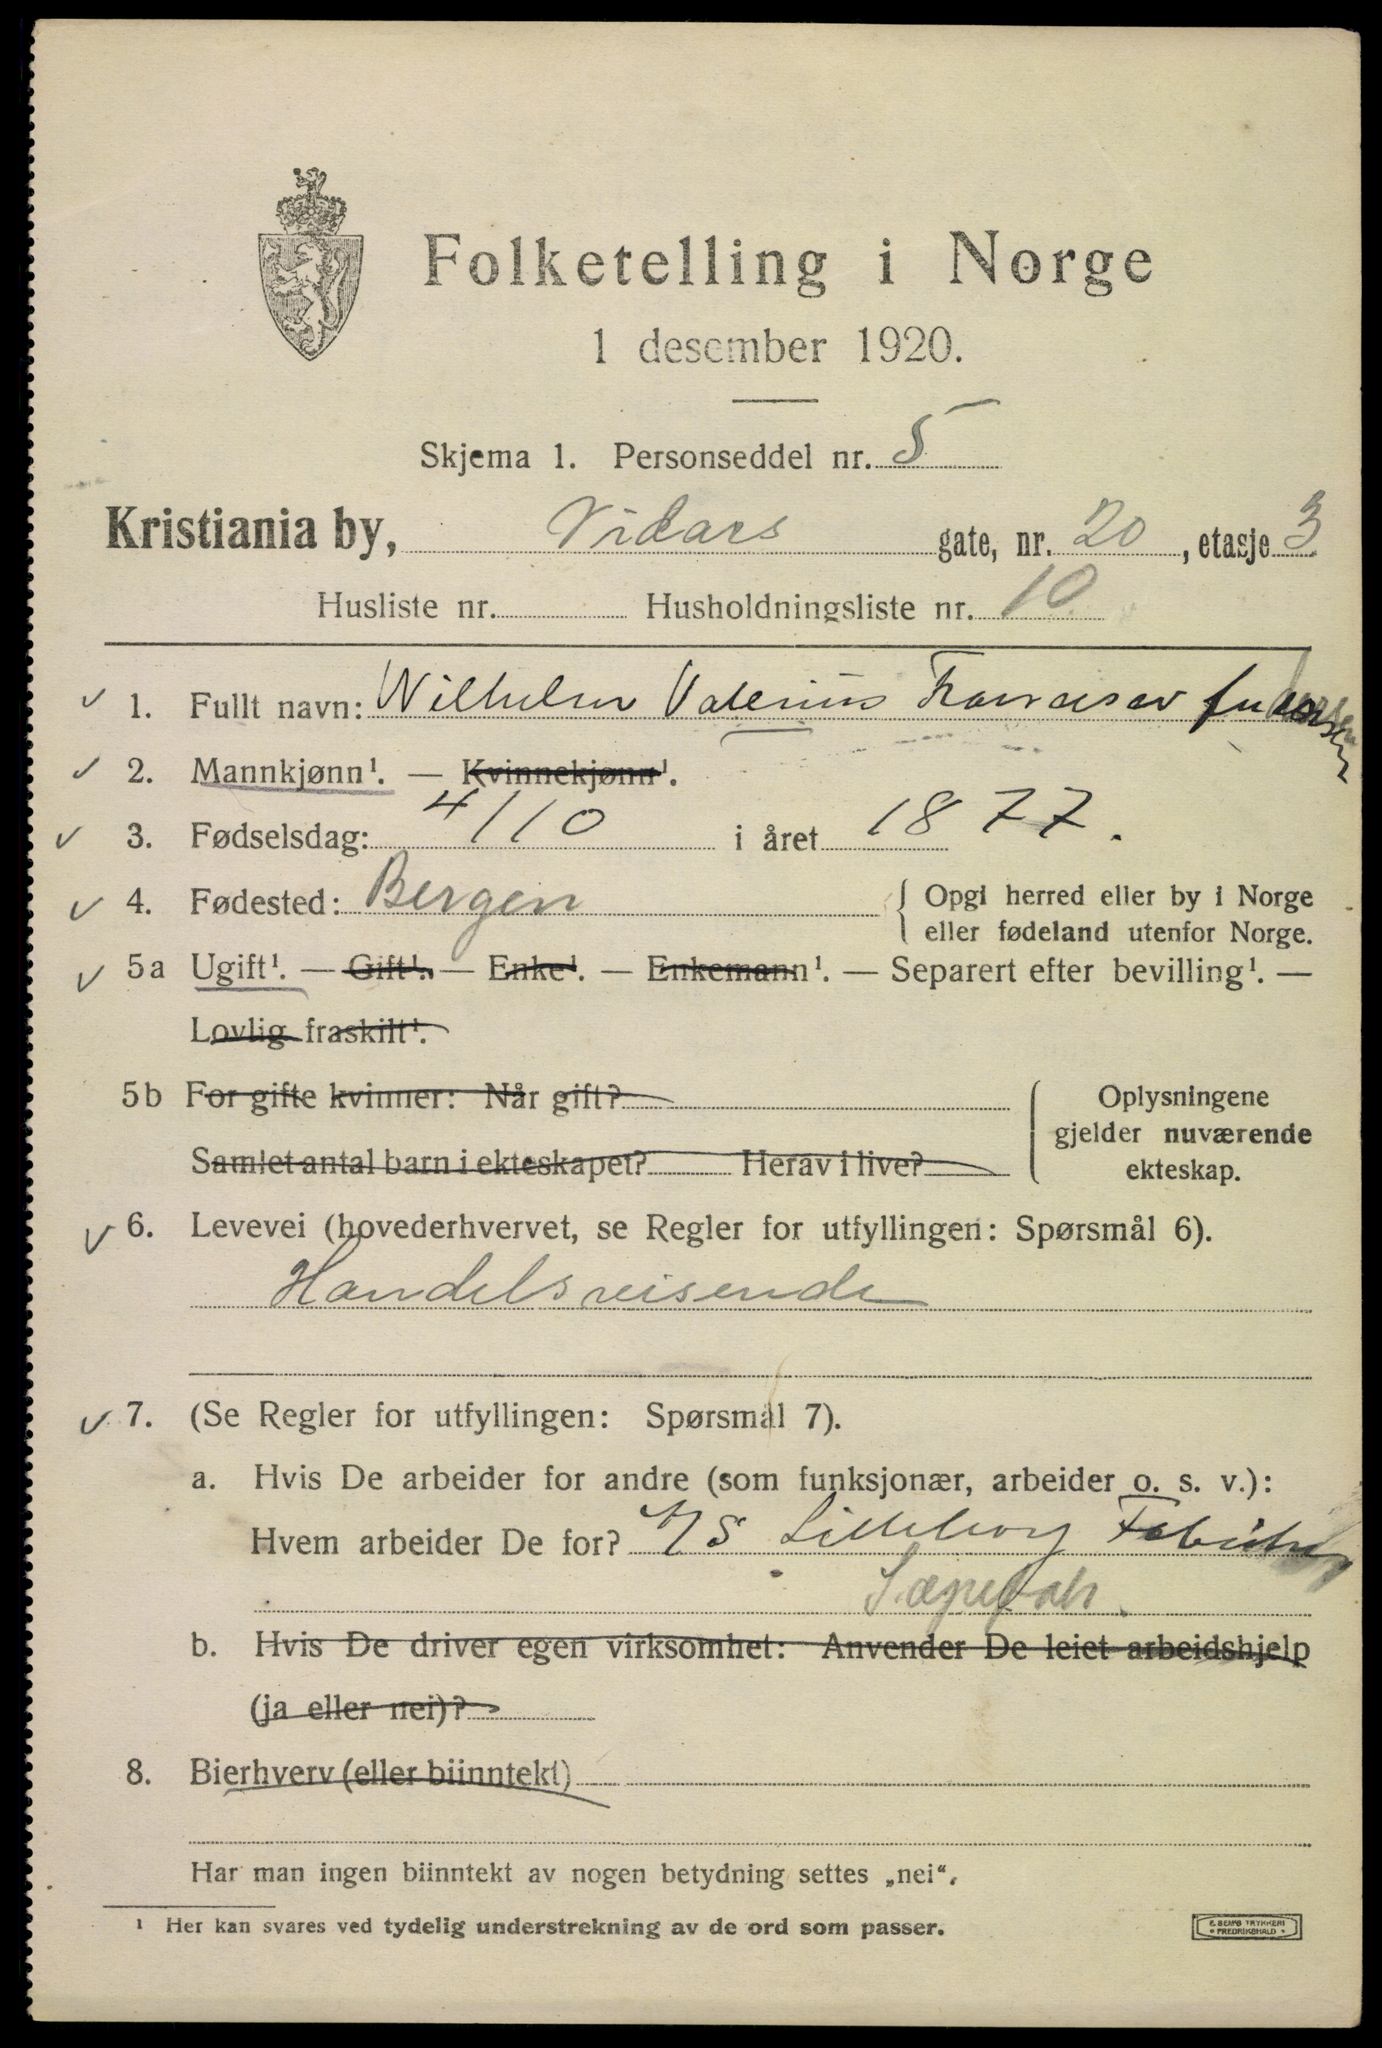 Folketelling i Norge
1 desember 1920.
Skjema 1. Personseddel nr. 5
Kristiania by, Vidars gate, nr. 20, etasje 3
Husliste nr. Husholdningsliste nr. 10
1. Fullt navn: Wilhelm Valerius
2. Mannkjønn¹. — Kvinnekjønn¹.
3. Fødselsdag: 4/10 i året 1877.
4. Fødested: Bergen { Opgi herred eller by i Norge
eller fødeland utenfor Norge.
5a Ugift¹. — Gift¹. — Enke¹. — Enkemann¹. — Separert efter bevilling¹. —
Lovlig fraskilt¹.
5b For gifte kvinner: Når gift?
Samlet antal barn i ekteskapet? Herav i live?
Oplysningene
gjelder nuværende
ekteskap.
6. Levevei (hovederhvervet, se Regler for utfyllingen: Spørsmål 6).
Handelsreisende
7. (Se Regler for utfyllingen: Spørsmål 7).
a. Hvis De arbeider for andre (som funksjonær, arbeider o. s. v.):
Hvem arbeider De for? A/S Lilleborg Fabriker
Sæpefab.
b. Hvis De driver egen virksomhet: Anvender De leiet arbeidshjelp
(ja eller nei)?
8. Bierhverv (eller biinntekt)
Har man ingen biinntekt av nogen betydning settes „nei“.
¹ Her kan svares ved tydelig understrekning av de ord som passer.
E. SEMS TRYKKERI
• FREDRIKSHALD •